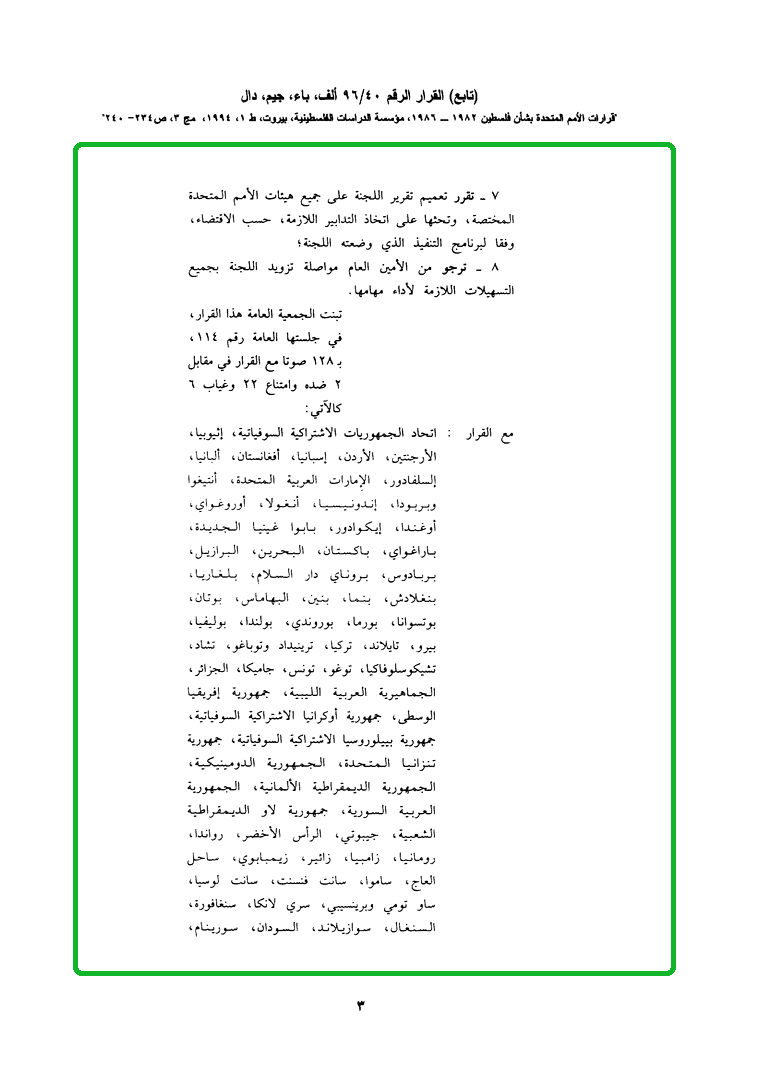 (تابع) القرار الرقم ٩٦/٤٠ ألف، باء، جيم، دال
"قرارات الأمم المتحدة بشأن فلسطين ١٩٨٢ ــ ١٩٨٦، مؤسسة الدراسات الفلسطينية، بيروت، ط ١، ١٩٩٤، مج ٣، ص٢٣٤- ٢٤٠"
٧ ـ تقرر تعميم تقرير اللجنة على جميع هيئات الأمم المتحدة
المختصة، وتحثها على اتخاذ التدابير اللازمة، حسب الاقتضاء،
وفقا لبرنامج التنفيذ الذي وضعته اللجنة؛
٨ ـ ترجو من الأمين العام مواصلة تزويد اللجنة بجميع
التسهيلات اللازمة لأداء مهامها.
تبنت الجمعية العامة هذا القرار،
في جلستها العامة رقم ١١٤،
بـ ١٢٨ صوتا مع القرار في مقابل
٢ ضده وامتناع ٢٢ وغياب ٦
كالآتي:
مع القرار : اتحاد الجمهوريات الاشتراكية السوفياتية، إثيوبيا،
الأرجنتين، الأردن، إسبانيا، أفغانستان، ألبانيا،
إلسلفادور، الإمارات العربية المتحدة، أنتيغوا
وبربودا، إندونيسيا، أنغولا، أوروغواي،
أوغندا، إيكوادور، بابوا غينيا الجديدة،
باراغواي، باكستان، البحرين، البرازيل،
بربادوس، بروناي دار السلام، بلغاريا،
بنغلادش، بنما، بنين، البهاماس، بوتان،
بوتسوانا، بورما، بوروندي، بولندا، بوليفيا،
بيرو، تايلاند، تركيا، ترينيداد وتوباغو، تشاد،
تشيكوسلوفاكيا، توغو، تونس، جاميكا، الجزائر،
الجماهيرية العربية الليبية، جمهورية إفريقيا
الوسطى، جمهورية أوكرانيا الاشتراكية السوفياتية،
جمهورية بييلوروسيا الاشتراكية السوفياتية، جمهورية
تنزانيا المتحدة، الجمهورية الدومينيكية،
الجمهورية الديمقراطية الألمانية، الجمهورية
العربية السورية، جمهورية لاو الديمقراطية
الشعبية، جيبوتي، الرأس الأخضر، رواندا،
رومانيا، زامبيا، زائير، زيمبابوي، ساحل
العاج، ساموا، سانت فنسنت، سانت لوسيا،
ساو تومي وبرينسيبي، سري لانكا، سنغافورة،
السنغال، سوازيلاند، السودان، سورينام،
٣